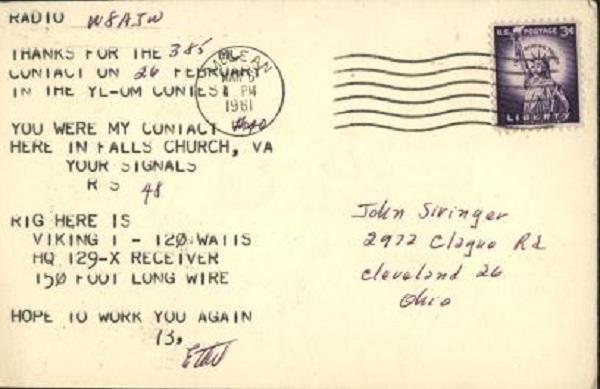 RADIO W8AJW
THANKS FOR THE 385 MC
CONTACT ON 26 FEBRUARY
IN THE YL-OM CONTEST
YOU WERE MY CONTACT
HERE IN FALLS CHURCH, VA
YOUR SIGNALS
R S 48
RIG HERE IS
VIKING I - 120 WATTS
HQ 129-X RECEIVER
150 FOOT LONG WIRE
HOPE TO WORK YOU AGAIN
73,
McLEAN
MAR
PM
1961
U.S. POSTAGE 3¢
LIBERTY
John Siringer
2972 Clague Rd
Cleveland 26
Ohio